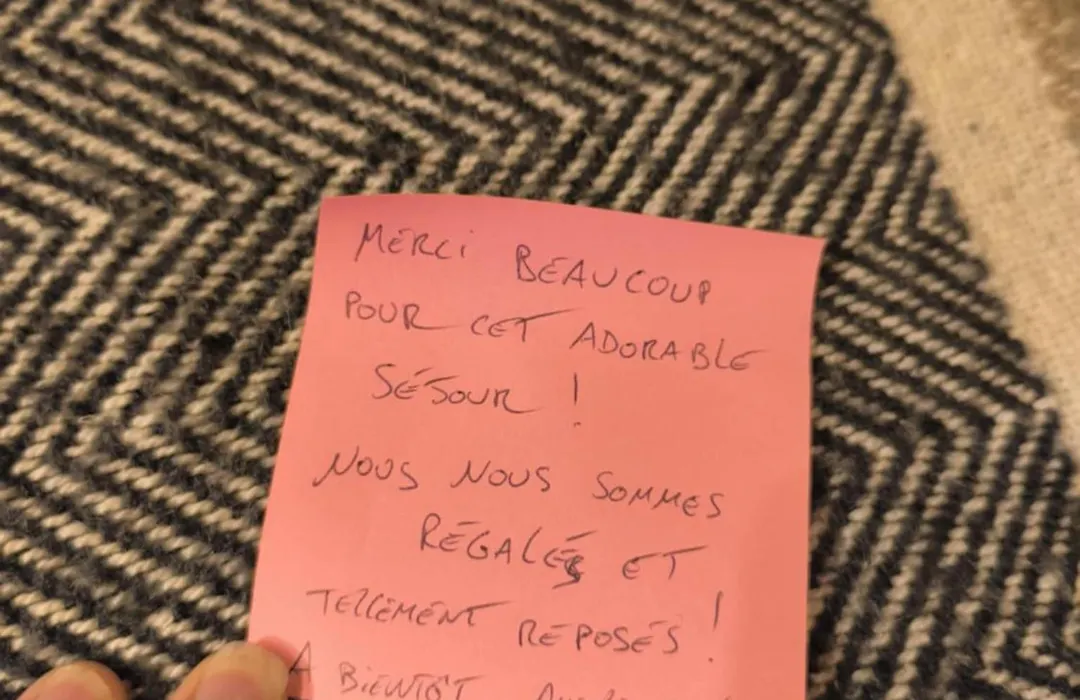 MERCI BEAUCOUP
POUR CET ADORABLE
SÉJOUR !
NOUS NOUS SOMMES
RÉGALÉS ET
TELLEMENT REPOSÉS !
A BIENTÔT